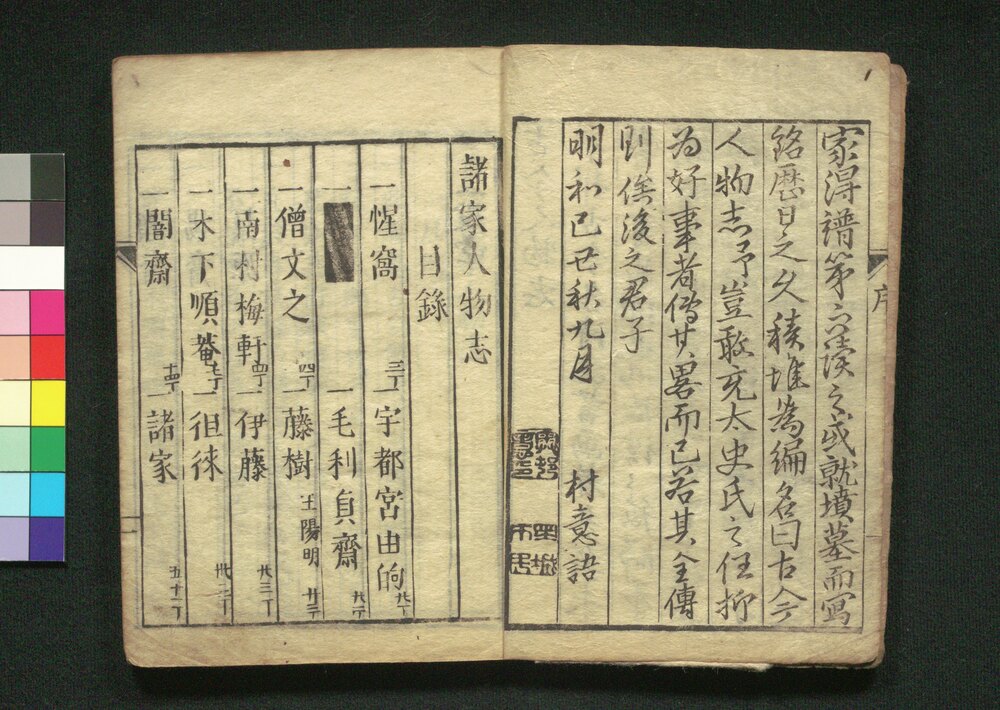 序
家得譜第而讀之或就墳墓而寫
銘歴日之久積堆為編名曰古今
人物志予豈敢充太史氏之任抑
為好事者備其畧而已若其全傳
則俟後之君子
明和己丑秋九月
村意語
諸家人物志
目錄
一惺窩 三丁
一宇都宮由的
一
一毛利貞齋
一僧文之 四丁
一藤樹 王陽明 廿三丁
一南村梅軒 四丁
一伊藤 廿三丁
一木下順菴 七丁
一徂徠
一闇齋 十四丁
一諸家 五十一丁